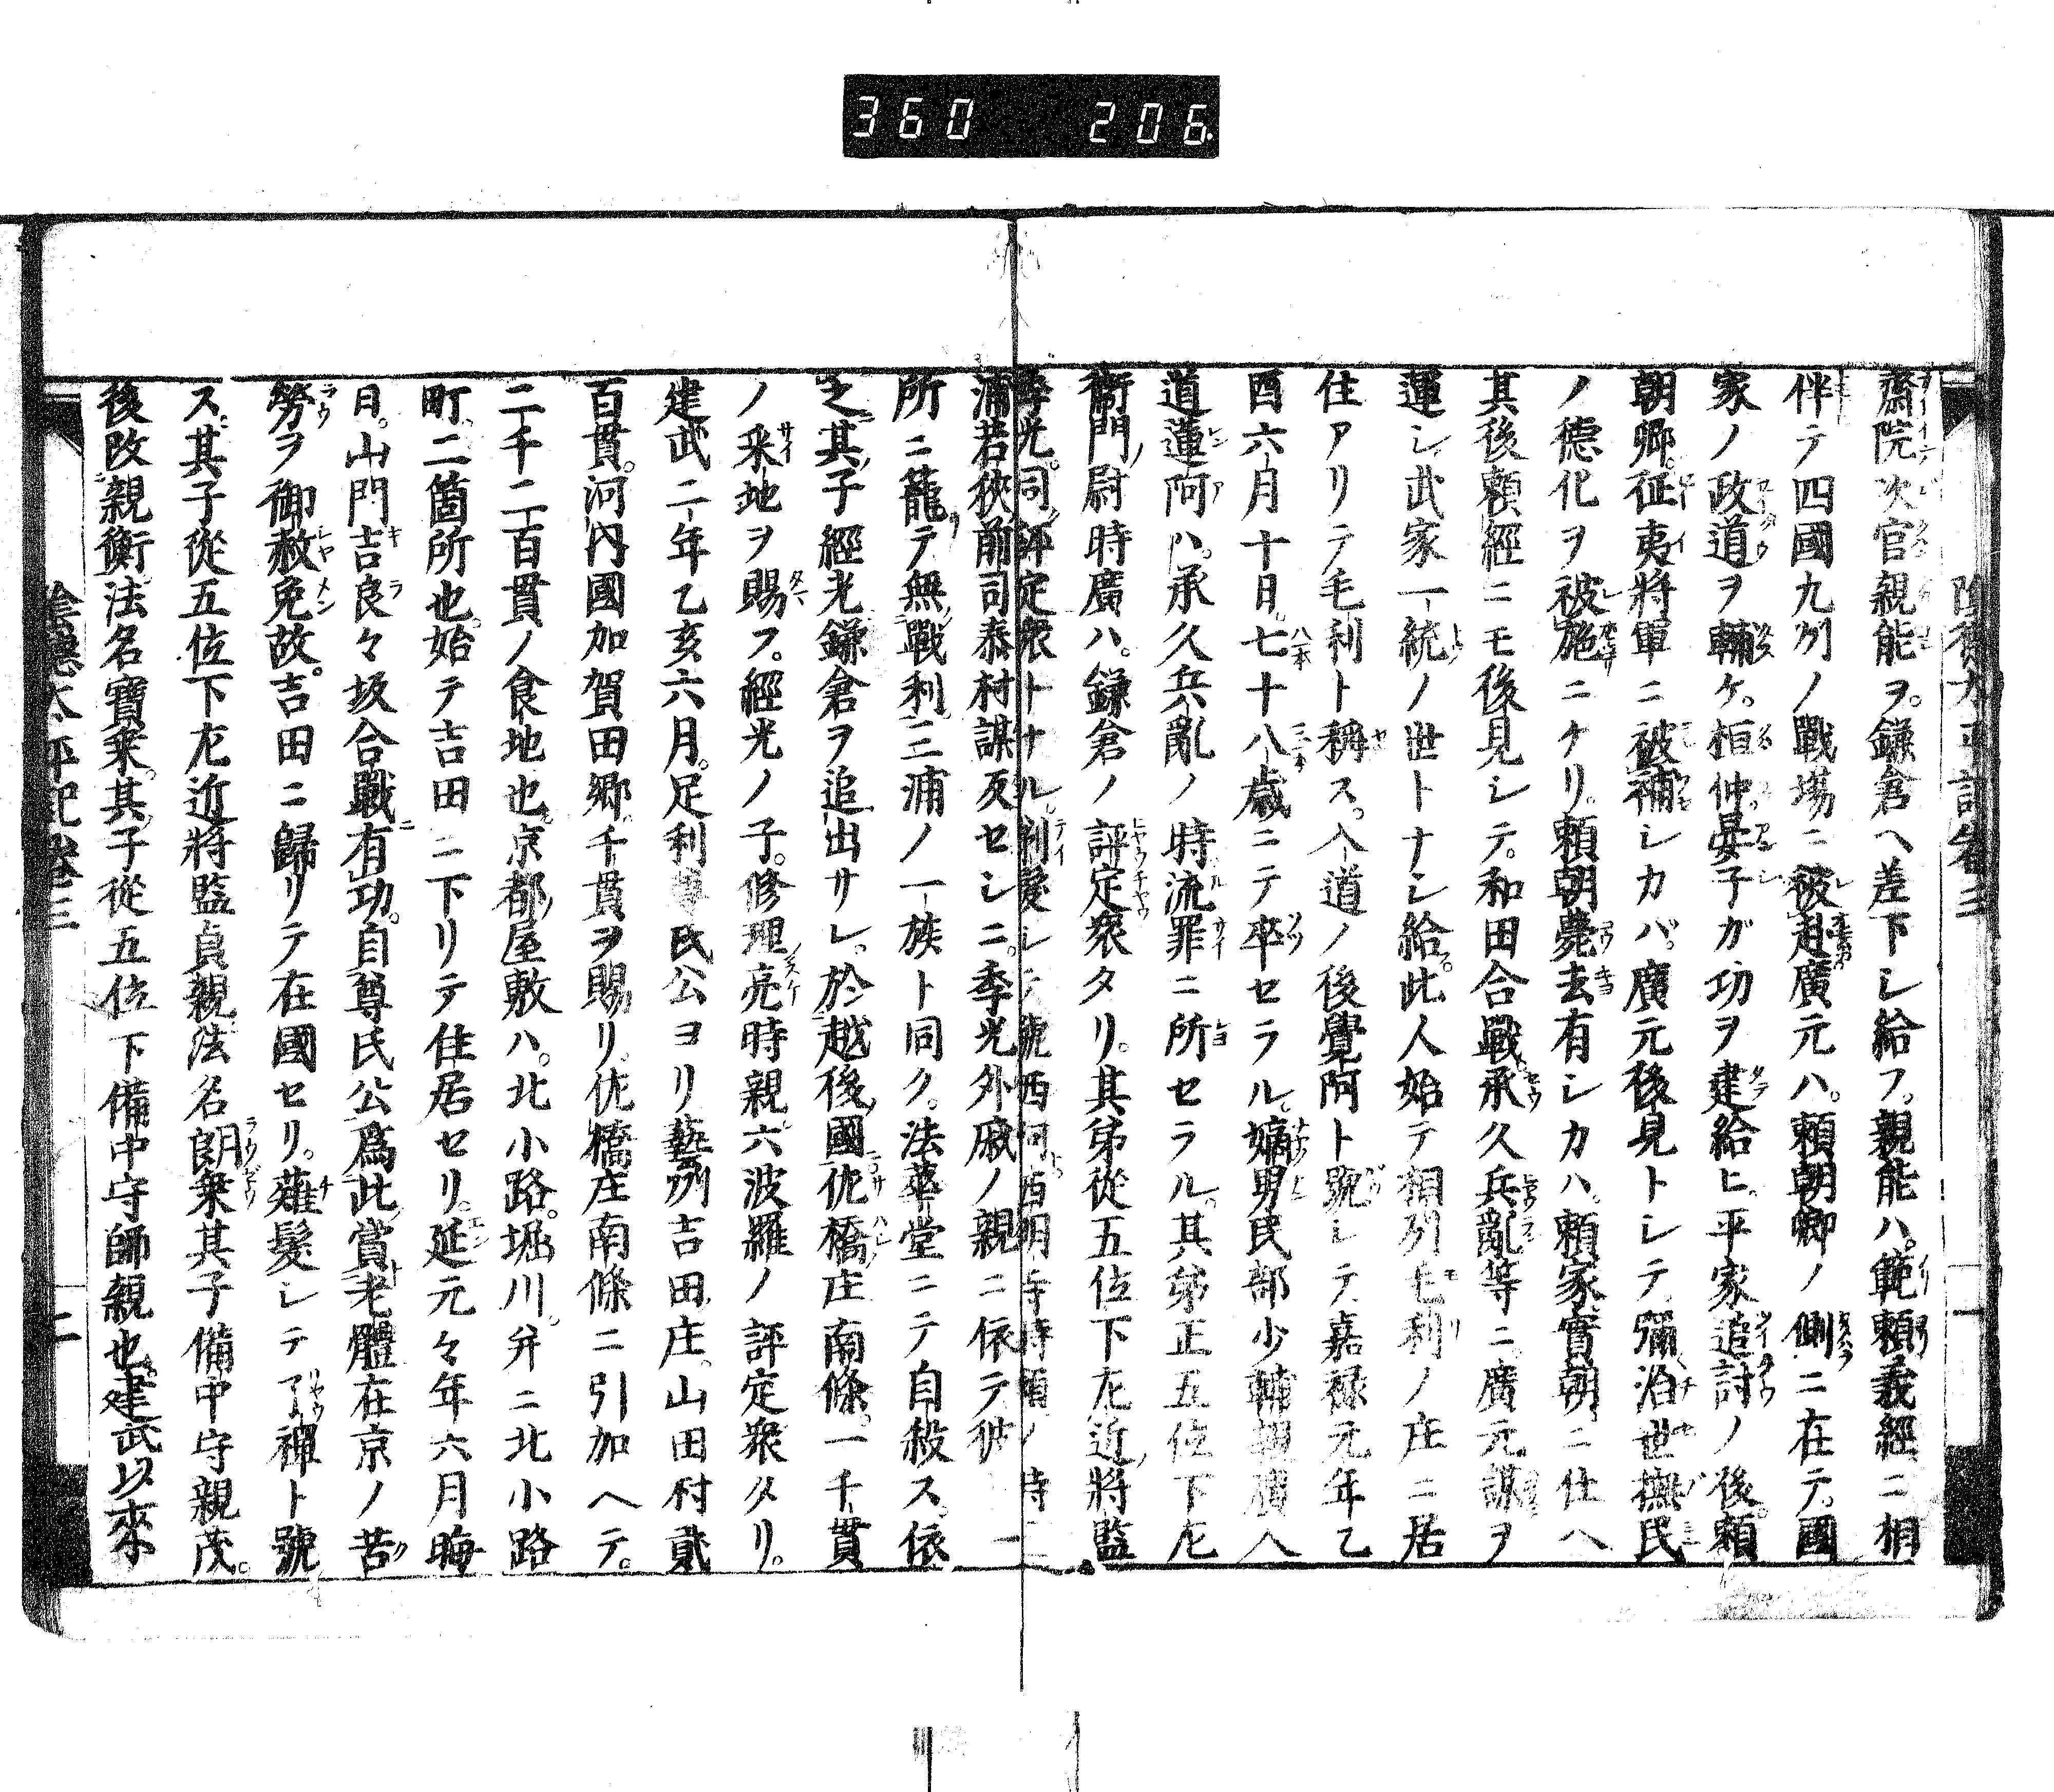 360 206
齋院次官親能ヲ。鎌倉ヘ差下シ給フ。親能ハ。範頼義經ニ相
伴テ四國九州ノ戰塲ニ被赴廣元ハ。頼朝卿ノ側ニ在テ。國
家ノ政道ヲ輔ケ。桓仲晏子ガ功ヲ建給ヒ。平家追討ノ後。頼
朝卿。征夷將軍ニ被補シカバ。廣元後見トシテ。彌治世撫民
ノ德化ヲ被施ニケリ。頼朝薨去有シカハ。頼家實朝ニ仕ヘ
其後頼經ニモ後見シテ。和田合戰。承久兵亂等ニ。廣元謀ヲ
運シ武家一統ノ世トナシ給フ。此人始テ相州毛利ノ庄ニ居
住アリテ毛利ト稱ス。入道ノ後覺阿ト號シテ。嘉禄元年乙
酉六月十日。七十八歳ニテ卒セラル。嫡男民部少輔親廣入
道蓮阿ハ。承久兵亂ノ時流罪ニ所セラル。其弟正五位下左
衞門尉時廣ハ。鎌倉ノ評定衆タリ。其弟從五位下左近將監
季光。同評定衆トナル。剃髮シテ號西阿西明寺時頼ノ時三
浦若狹前司泰村謀反セシニ。季光外戚ノ親ニ依テ彼一
所ニ籠テ無戰利。三浦ノ一族ト同ク。法華堂ニテ自殺ス。依
之其子經光鎌倉ヲ追出サレ。於越後國佐橋庄南條。一千貫
ノ釆地ヲ賜フ。經光ノ子。修理亮時親六波羅ノ評定衆タリ。
建武二年乙亥六月。足利尊氏公ヨリ藝州吉田庄。山田村貳
百貫。河内國加賀田郷千貫ヲ賜リ。佐橋庄南條ニ引加ヘテ。
二千二百貫ノ食地也。京都屋敷ハ。北小路。堀川。并ニ北小路
町二箇所也。始テ吉田ニ下リテ住居セリ。延元々年六月晦
日。山門吉良々坂合戰有功。自尊氏公爲此賞老體在京ノ苦
勞ヲ御赦免故。吉田ニ歸リテ在國セリ。薙髮シテ了禪ト號
ス。其子從五位下左近將監貞親法名朗乗其子備中守親茂。
後改親衡法名寶乗。其子從五位下備中守師親也。建武以來
陰德太平記卷三
二